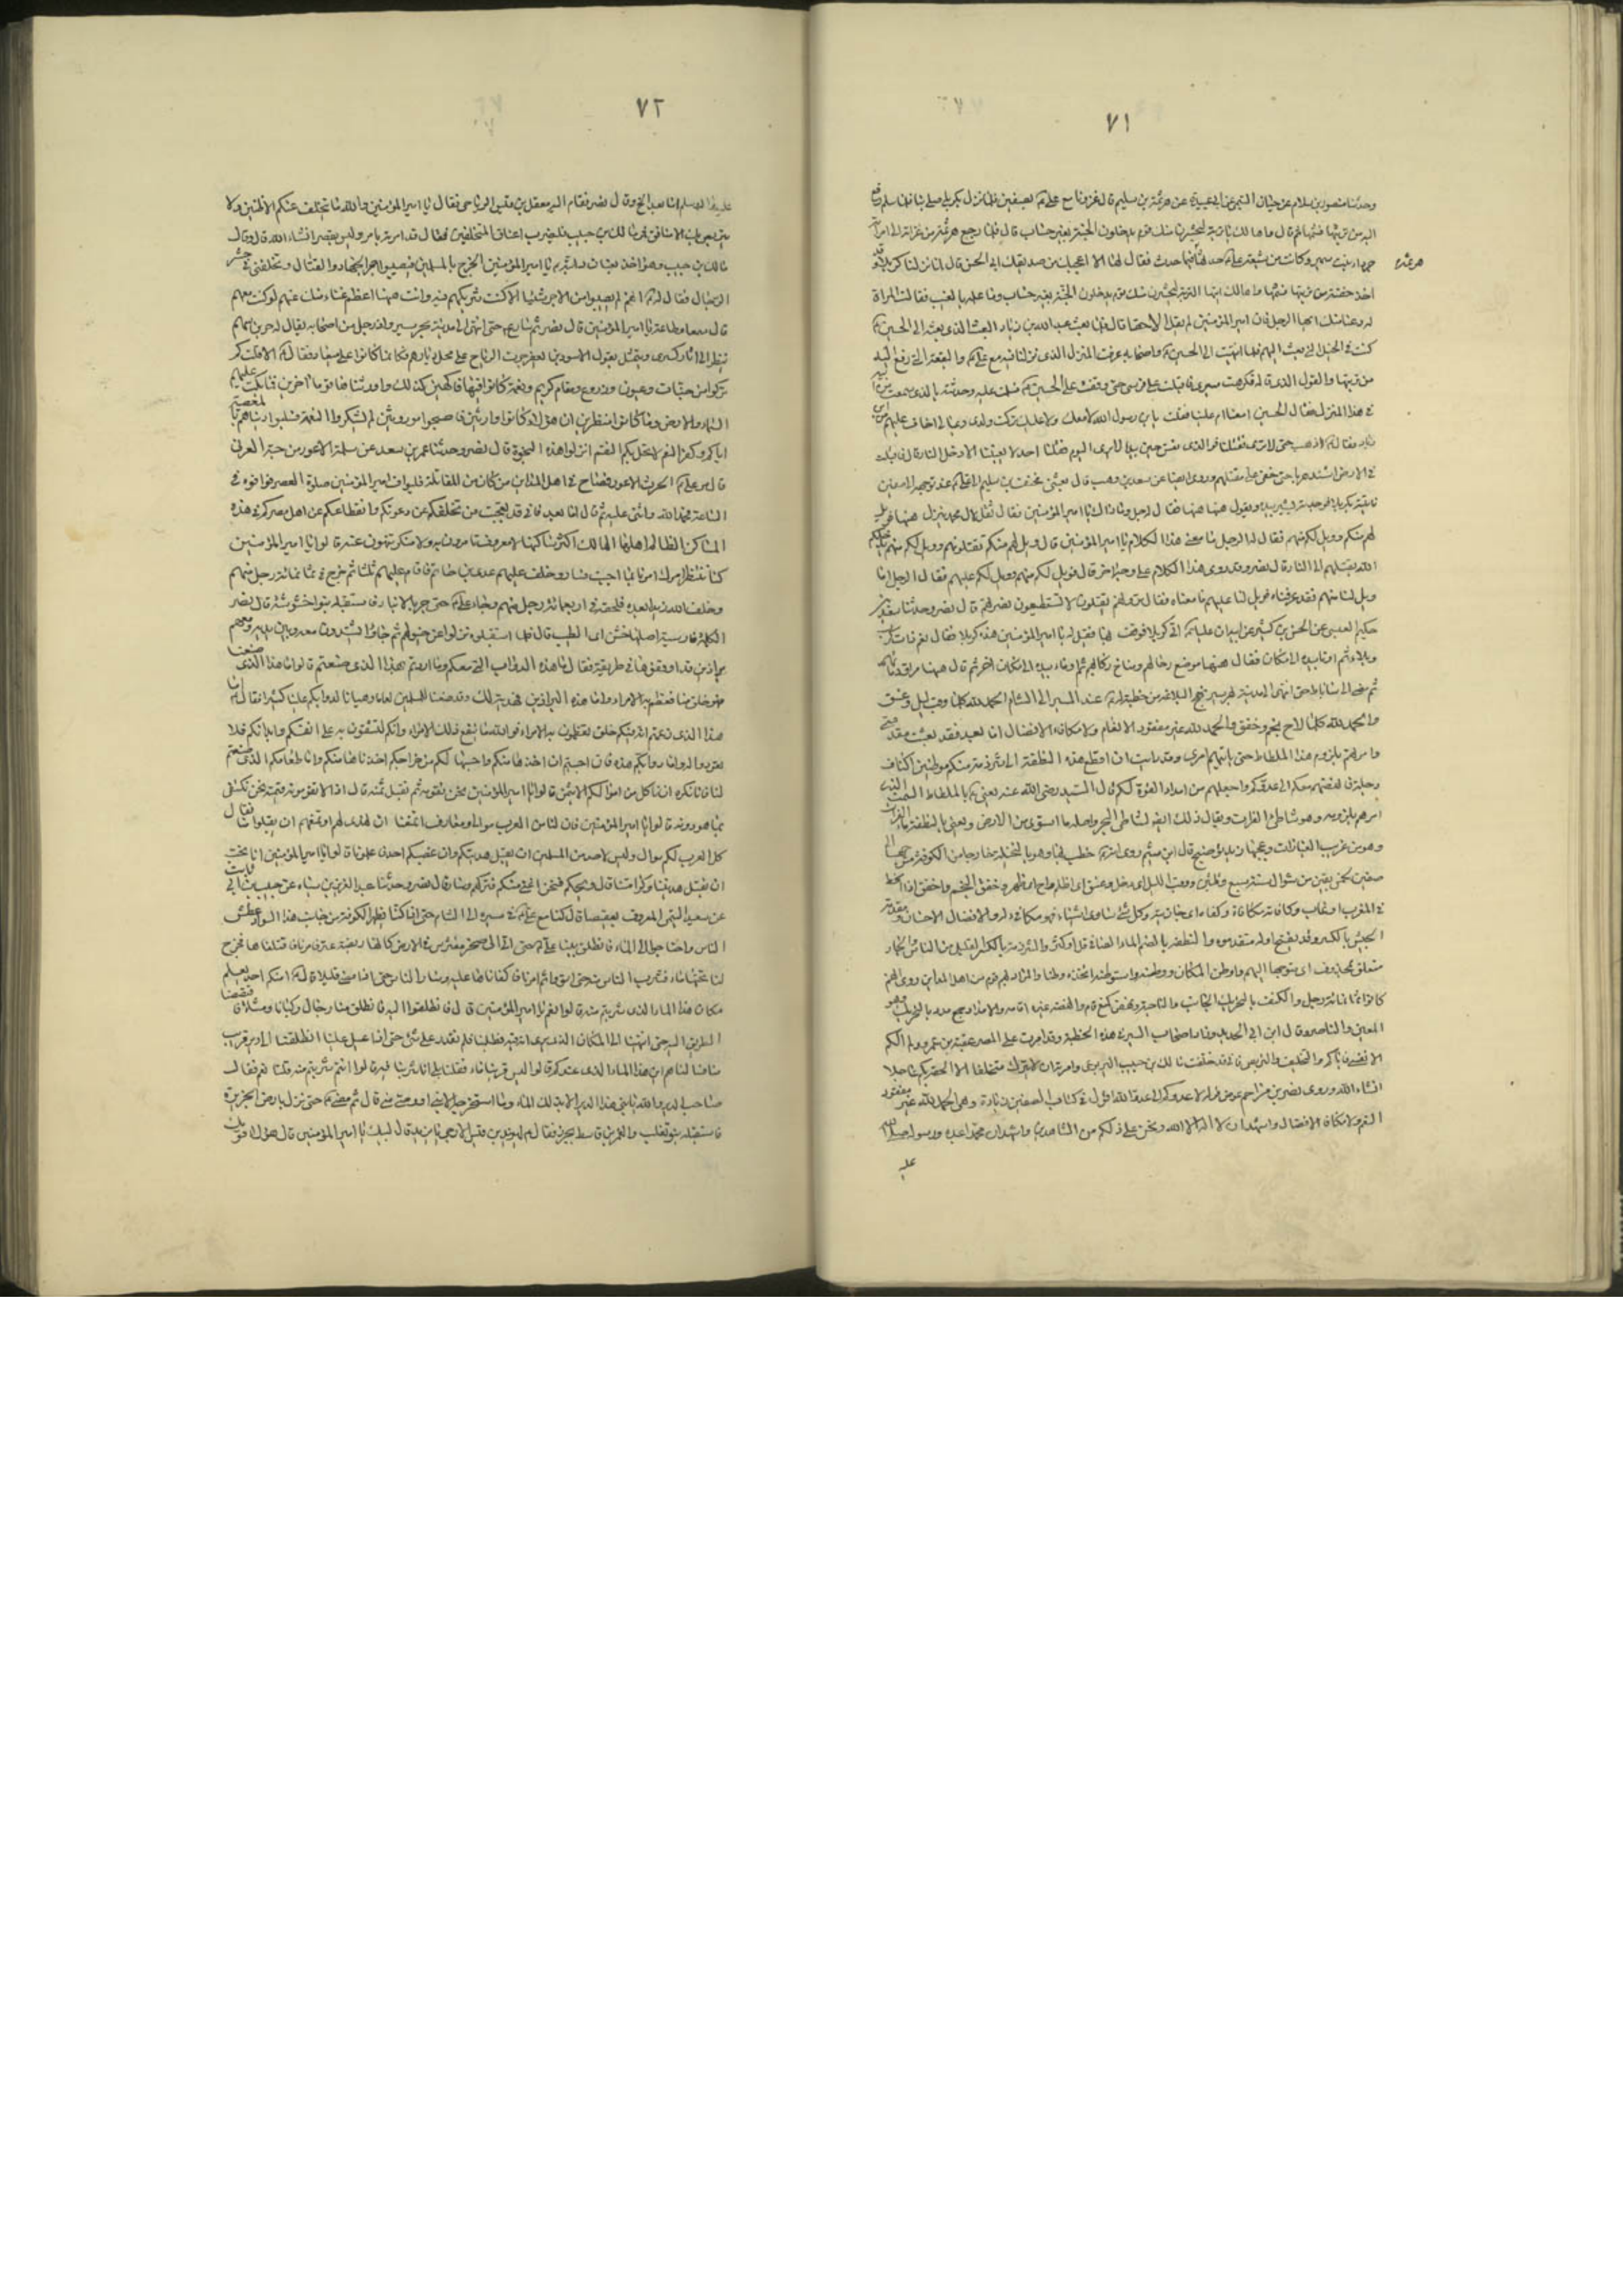 ٧١
وحدثنا منصور بن سلام عن حيان التيمي عن ابي عبيدة عن هرثمة بن سليم قال غزونا مع علي ع بصفين فلما نزل بكربلا صلى بنا فلما سلم رفع
اليه من تربتها فشمها ثم قال واها لك يا تربة ليحشرن منك قوم يدخلون الجنة بغير حساب قال فلما رجع هرثمة من غزاته الى امرأته
هرثمة
جرداء بنت سمير وكانت من شيعة علي ع حدثها هرثمة فيما حدث فقال لها الا اعجبك من صديقك ابي الحسن قال لما نزلنا كربلا وقد
اخذ حفنة من تربتها فشمها وقال واها لك ايتها التربة ليحشرن منك قوم يدخلون الجنة بغير حساب وما علمه بالغيب فقالت المراة
له دعنا منك ايها الرجل فان امير المؤمنين لم يقل الا حقا قال فلما بعث عبيد الله بن زياد البعث الذي بعثه الى الحسين ع
كنت في الخيل التي بعث اليهم فلما انتهيت الى الحسين ع واصحابه عرفت المنزل الذي نزلنا فيه مع علي ع والبقعة التي رفع اليه
من تربتها والقول الذي قاله فكرهت مسيري فاقبلت على فرسي حتى وقفت على الحسين ع فسلمت عليه وحدثته بالذي سمعت من ابيه
في هذا المنزل فقال الحسين امعنا ام علينا فقلت يا بن رسول الله لا معك ولا عليك تركت ولدي وعيالي اخاف عليهم من ابن
زياد فقال ع اذهب حتى لا ترى مقتلنا فوالذي نفس حسين بيده لا يرى اليوم مقتلنا احد ثم لا يعيننا الا دخل النار قال فاقبلت
في الارض اشتد هربا حتى خفي علي مقتلهم وروى ايضا عن سعد بن وهب قال بعثني مخنف بن سليم الى علي ع عند توجهه الى صفين
فاتيته بكربلا فوجدته يشير بيده ويقول ههنا ههنا فقال له رجل وما ذاك يا امير المؤمنين فقال ثقل لال محمد ينزل ههنا فويل
لهم منكم وويل لكم منهم فقال له الرجل ما معنى هذا الكلام يا امير المؤمنين قال ويل لهم منكم تقتلونهم وويل لكم منهم يدخلكم
الله بقتلهم الى النار قال نصر وقد روى هذا الكلام على وجه اخر قال فويل لكم منهم وويل لكم عليهم فقال الرجل اما
ويل لنا منهم فقد عرفناه فويل لنا عليهم ما معناه فقال ترونهم يقتلون لا تستطيعون نصرتهم قال نصر وحدثنا سعيد بن
حكيم العبسي عن الحسن بن كثير عن ابيه ان عليا ع اتى كربلا فوقف بها فقيل له يا امير المؤمنين هذه كربلا فقال نعم ذات كرب
وبلاء ثم اومأ بيده الى مكان فقال ههنا موضع رحالهم ومناخ ركابهم ثم اومأ بيده الى مكان اخر ثم قال ههنا مراق دمائهم
ثم مضى الى ساباط حتى انتهى الى مدينة بهرسير نهج البلاغة من خطبة له ع عند المسير الى الشام الحمد لله كلما وقب ليل وغسق
والحمد لله كلما لاح نجم وخفق والحمد لله غير مفقود الانعام ولا مكافا الافضال اما بعد فقد بعثت مقدمتي
وامرتهم بلزوم هذا الملطاط حتى يأتيهم امري وقد رأيت ان اقطع هذه النطفة الى شرذمة منكم موطنين اكناف
دجلة فانهضهم معكم الى عدوكم واجعلهم من امداد القوة لكم قال السيد رضي الله عنه يعني ع بالملطاط السمت الذي
امرهم بلزومه وهو شاطئ الفرات ويقال ذلك ايضا لشاطئ البحر واصله ما استوى من الارض ويعني بالنطفة ماء الفرات
وهو من غريب العبارات وعجيبها قال ابن ميثم روى انه ع خطب بها وهو بالنخيلة خارجا من الكوفة متوجها الى
صفين لخمس بقين من شوال سنة سبع وثلثين ووقب الليل اي دخل وغسق اي اظلم ولاح اي ظهر وخفق النجم واخفق اذا انحط
في المغرب او غاب وكافاته مكافاة وكفاء اي جازيته وكل شئ ساوى شيئا فهو مكافئ له والافضال الاحسان ومقدمة
الجيش بالكسر وقد يفتح اوله متقدموه والنطفة بالضم الماء الصافي قل او كثر والشرذمة بالكسر القليل من الناس والجار
متعلق بمحذوف اي متوجها اليهم واوطن المكان ووطنه واستوطنه اتخذه وطنا والمراد بهم قوم من اهل المداين روى انهم
كانوا ثمانمائة رجل والكنف بالتحريك الجانب والناحية ونهض كمنع قام وانهضه غيره اقامه والامداد جمع مدد بالتحريك وهو
المعين والناصر وقال ابن ابي الحديد وزاد اصحاب السير في هذه الخطبة وقد امرت على المصر عقبة بن عمرو ولم الكم
الا نفسي فاياكم والتخلف والتربص فاني قد خلفت مالك بن حبيب اليربوعي وامرته ان لا يترك متخلفا الا الحقه بكم عاجلا
انشاء الله وروى نصر بن مزاحم عوض قوله الى عدوكم الى عدو الله اقول في كتاب الصفين زيادة وهي الحمد لله غير مفقود
النعم ولا مكافا الافضال واشهد ان لا اله الا الله ونحن على ذلكم من الشاهدين واشهد ان محمدا عبده ورسوله صلى الله
عليه
٧٢
عليه وآله وسلم اما بعد الخ وقال نصر فقام اليه معقل بن قيس الرياحي فقال يا امير المؤمنين والله ما يتخلف عنكم الا ظنين ولا
يتربص بك الا منافق فمر مالك بن حبيب فليضرب اعناق المتخلفين فقال قد امرته بامري وليس بمقصر انشاء الله قال وقال
مالك بن حبيب وهو آخذ بعنان دابته ع يا امير المؤمنين اتخرج بالمسلمين فيصيبوا اجر الجهاد والقتال وتخلفني في حشر
الرجال فقال له ع انهم لم يصيبوا من الاجر شيئا الا كنت شريكهم فيه وانت ههنا اعظم غناء منك عنهم لو كنت معهم
قال سمعا وطاعة يا امير المؤمنين قال نصر ثم سار ع حتى انتهى الى مدينة بهرسير واذا رجل من اصحابه يقال له حر بن سهم
ينظر الى اثار كسرى ويتمثل بقول الاسود بن يعفر جرت الرياح على محل ديارهم فكانما كانوا على ميعاد فقال ع الا قلت كم
تركوا من جنات وعيون وزروع ومقام كريم ونعمة كانوا فيها فاكهين كذلك واورثناها قوما اخرين فما بكت عليهم
السماء والارض وما كانوا منظرين ان هؤلاء كانوا وارثين فاصبحوا موروثين لم يشكروا النعمة فسلبوا دنياهم بالمعصية
اياكم وكفر النعم لا تحل بكم النقم انزلوا هذه النجوة قال نصر وحدثنا عمر بن سعد عن مسلم الاعور عن حبة العرني
قال امر علي ع الحرث الاعور فصاح في اهل المداين من كان من المقاتلة فليواف امير المؤمنين صلوة العصر فوافوه في
الساعة فحمد الله واثنى عليه ثم قال اما بعد فاني قد تعجبت من تخلفكم عن دعوتكم وانقطاعكم عن اهل مصركم في هذه
المساكن الظالم اهلها الهالك اكثر ساكنها لا معروف تأمرون به ولا منكر تنهون عنه قالوا يا امير المؤمنين
كنا ننتظر امرك مرنا بما احببت فسار وخلف عليهم عدي بن حاتم فاقام عليهم ثلثا ثم خرج في ثمانمائة رجل منهم
وخلف ابنه زيدا بعده فلحقه في اربعمائة رجل منهم وجاء علي ع حتى مر بالانبار فاستقبله بنو خشنوشك قال نصر
الكلمة فارسية اصلها خش اي الطيب قال فلما استقبلوه نزلوا عن خيولهم ثم جاؤا يشتدون معه وبين يديه ومعهم
براذين قد اوقفوها في طريقه فقال ما هذه الدواب التي معكم وما اردتم بهذا الذي صنعتم قالوا اما هذا الذي صنعنا
فهو خلق منا نعظم به الامراء واما هذه البراذين فهدية لك وقد صنعنا للمسلمين طعاما وهيأنا لدوابكم علفا كثيرا فقال ع اما
هذا الذي زعمتم انه فيكم خلق تعظمون به الامراء فوالله ما ينفع ذلك الامراء وانكم لتشقون به على انفسكم وابدانكم فلا
تعودوا له واما دوابكم هذه فان احببتم ان اخذها منكم واحسبها لكم من خراجكم اخذناها منكم واما طعامكم الذي صنعتم
لنا فانا نكره ان نأكل من اموالكم الا بثمن قالوا يا امير المؤمنين نحن نقومه ثم نقبل ثمنه قال اذا لا تقومونه قيمته نحن نكتفي
بما هو دونه قالوا يا امير المؤمنين فان لنا من العرب موالي ومعارف اتمنعنا ان نهدي لهم او تمنعهم ان يقبلوا منا فقال
كل العرب لكم موال وليس لاحد من المسلمين ان يقبل هديتكم وان غصبكم احد فاعلمونا قالوا يا امير المؤمنين انا نحب
ان تقبل هديتنا وكرامتنا قال ويحكم فنحن اغنى منكم فتركهم وسار قال نصر وحدثنا عبد العزيز بن سياه عن حبيب بن ابي ثابت
عن سعيد التيمي المعروف بعقيصا قال كنا مع علي ع في مسيره الى الشام حتى اذا كنا بظهر الكوفة من جانب هذا السواد عطش
الناس واحتاجوا الى الماء فانطلق بنا علي ع حتى اتى الى صخرة مضرس في الارض كانها ربضة عنز فامرنا فاقتلعناها فخرج
لنا تحتها ماء فشرب الناس منه حتى ارتووا ثم امرنا فاكفاناها عليه وسار الناس حتى اذا مضى قليلا قال ع امنكم احد يعلم
مكان هذا الماء الذي شربتم منه قالوا نعم يا امير المؤمنين قال فانطلقوا اليه فانطلق منا رجال ركبانا ومشاة فاقتصصنا
الطريق اليه حتى انتهينا الى المكان الذي نرى انه فيه فطلبناه فلم نقدر على شئ حتى اذا عيل علينا انطلقنا الى دير قريب
منا فسالناهم اين هذا الماء الذي عندكم قالوا ليس قربنا ماء فقلنا بلى انا شربنا منه قالوا انتم شربتم منه قلنا نعم فقال
صاحب الدير والله ما بني هذا الدير الا بذلك الماء وما استخرجه الا نبي او وصي نبي قال ثم مضى ع حتى نزل بارض الجزيرة
فاستقبله بنو تغلب والنمر بن قاسط بجزر فقال ع ليزيد بن قيس الارحبي يا يزيد قال لبيك يا امير المؤمنين قال هؤلاء قومك